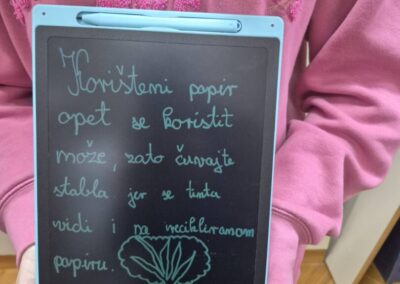 Korišteni papir
opet se koristit
može, zato čuvajte
stabla jer se tinta
vidi i na recikliranom
papiru.